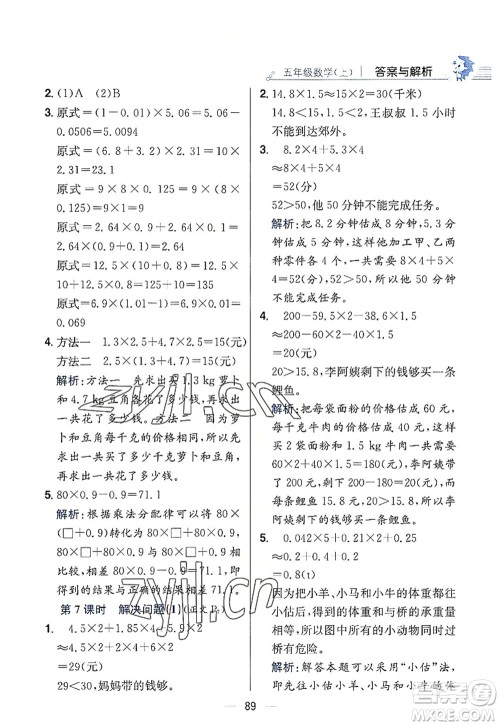 五年级数学(上) 答案与解析
2. (1)A (2)B
3. 原式=(1-0.01)×5.06=5.06-
0.0506=5.0094
原式=(7.8+3.2)×2.1=
11×2.1=23.1
原式=9×8×0.125=9×(8×
0.125)=9×1=9
原式=2.64×0.9+2.64×0.1=
2.64×(0.9+0.1)=2.64×1=
2.64
原式=6.9×(1.01-1)=6.9×0.01=
0.069
4. 方法一 1.3×2.5+4.7×2.5=15(元)
方法二 2.5×(1.3+4.7)=15(元)
解析:方法一 先求出买1.3 kg萝卜
和4.7 kg豆角各花了多少钱,再求出
一共花了多少钱。方法二 因为萝
卜和豆角每千克的价格相同,所以先
求出买了多少千克萝卜和豆角,再求
出一共花了多少钱。
5. 80×0.9-0.9=71.1
解析:根据乘法分配律可以将80×
(□+0.9)转化为80×□+80×0.9,
80×□+80×0.9与80×□+0.9
比较,相差80×0.9-0.9=71.1。
第7课时 解决问题(1)
1. 4.5×2+1.8×5+5.2×2
≈4.5×2+2×5+5×2
=29(元)
29<30,妈妈带的钱够。
2. 14.8×1.5≈15×2=30(千米)
14.8<15,1.5<2,王叔叔1.5小时
不能到达郊外。
3. 8.2×4+5.3×4
≈8×4+5×4
=52(分)
52>50,他50分钟不能完成任务。
解析:把8.2分钟估成8分钟,5.3分
钟估成5分钟,这样他加工甲、乙两
种零件各4个,一共需要8×4+5×
4=52(分),52>50,所以他50分钟
不能完成任务。
4. 200-59.5×2-38.8×1.5
≈200-60×2-40×1.5
=20(元)
20>15.8,李阿姨剩下的钱够买一条
鲤鱼。
解析:把每袋面粉的价格估成60元,
每千克牛肉的价格估成40元,这样
买2袋面粉和1.5千克牛肉一共需要
60×2+40×1.5=180(元),李阿姨
还剩200-180=20(元),20>15.8,
所以李阿姨剩下的钱够买一条鲤鱼。
5. 0.042×5+0.21×2+0.2
≈0.04×5+0.2×2+0.2
=0.8(t)
因为把小羊、小马和小牛的体重都估
小了,估计的体重和与桥的承重量
相等,所以所有的小动物同时过
桥有危险。
解析:解答本题可以运用“小估”法,
89
zyjl.cn
zyjl.cn